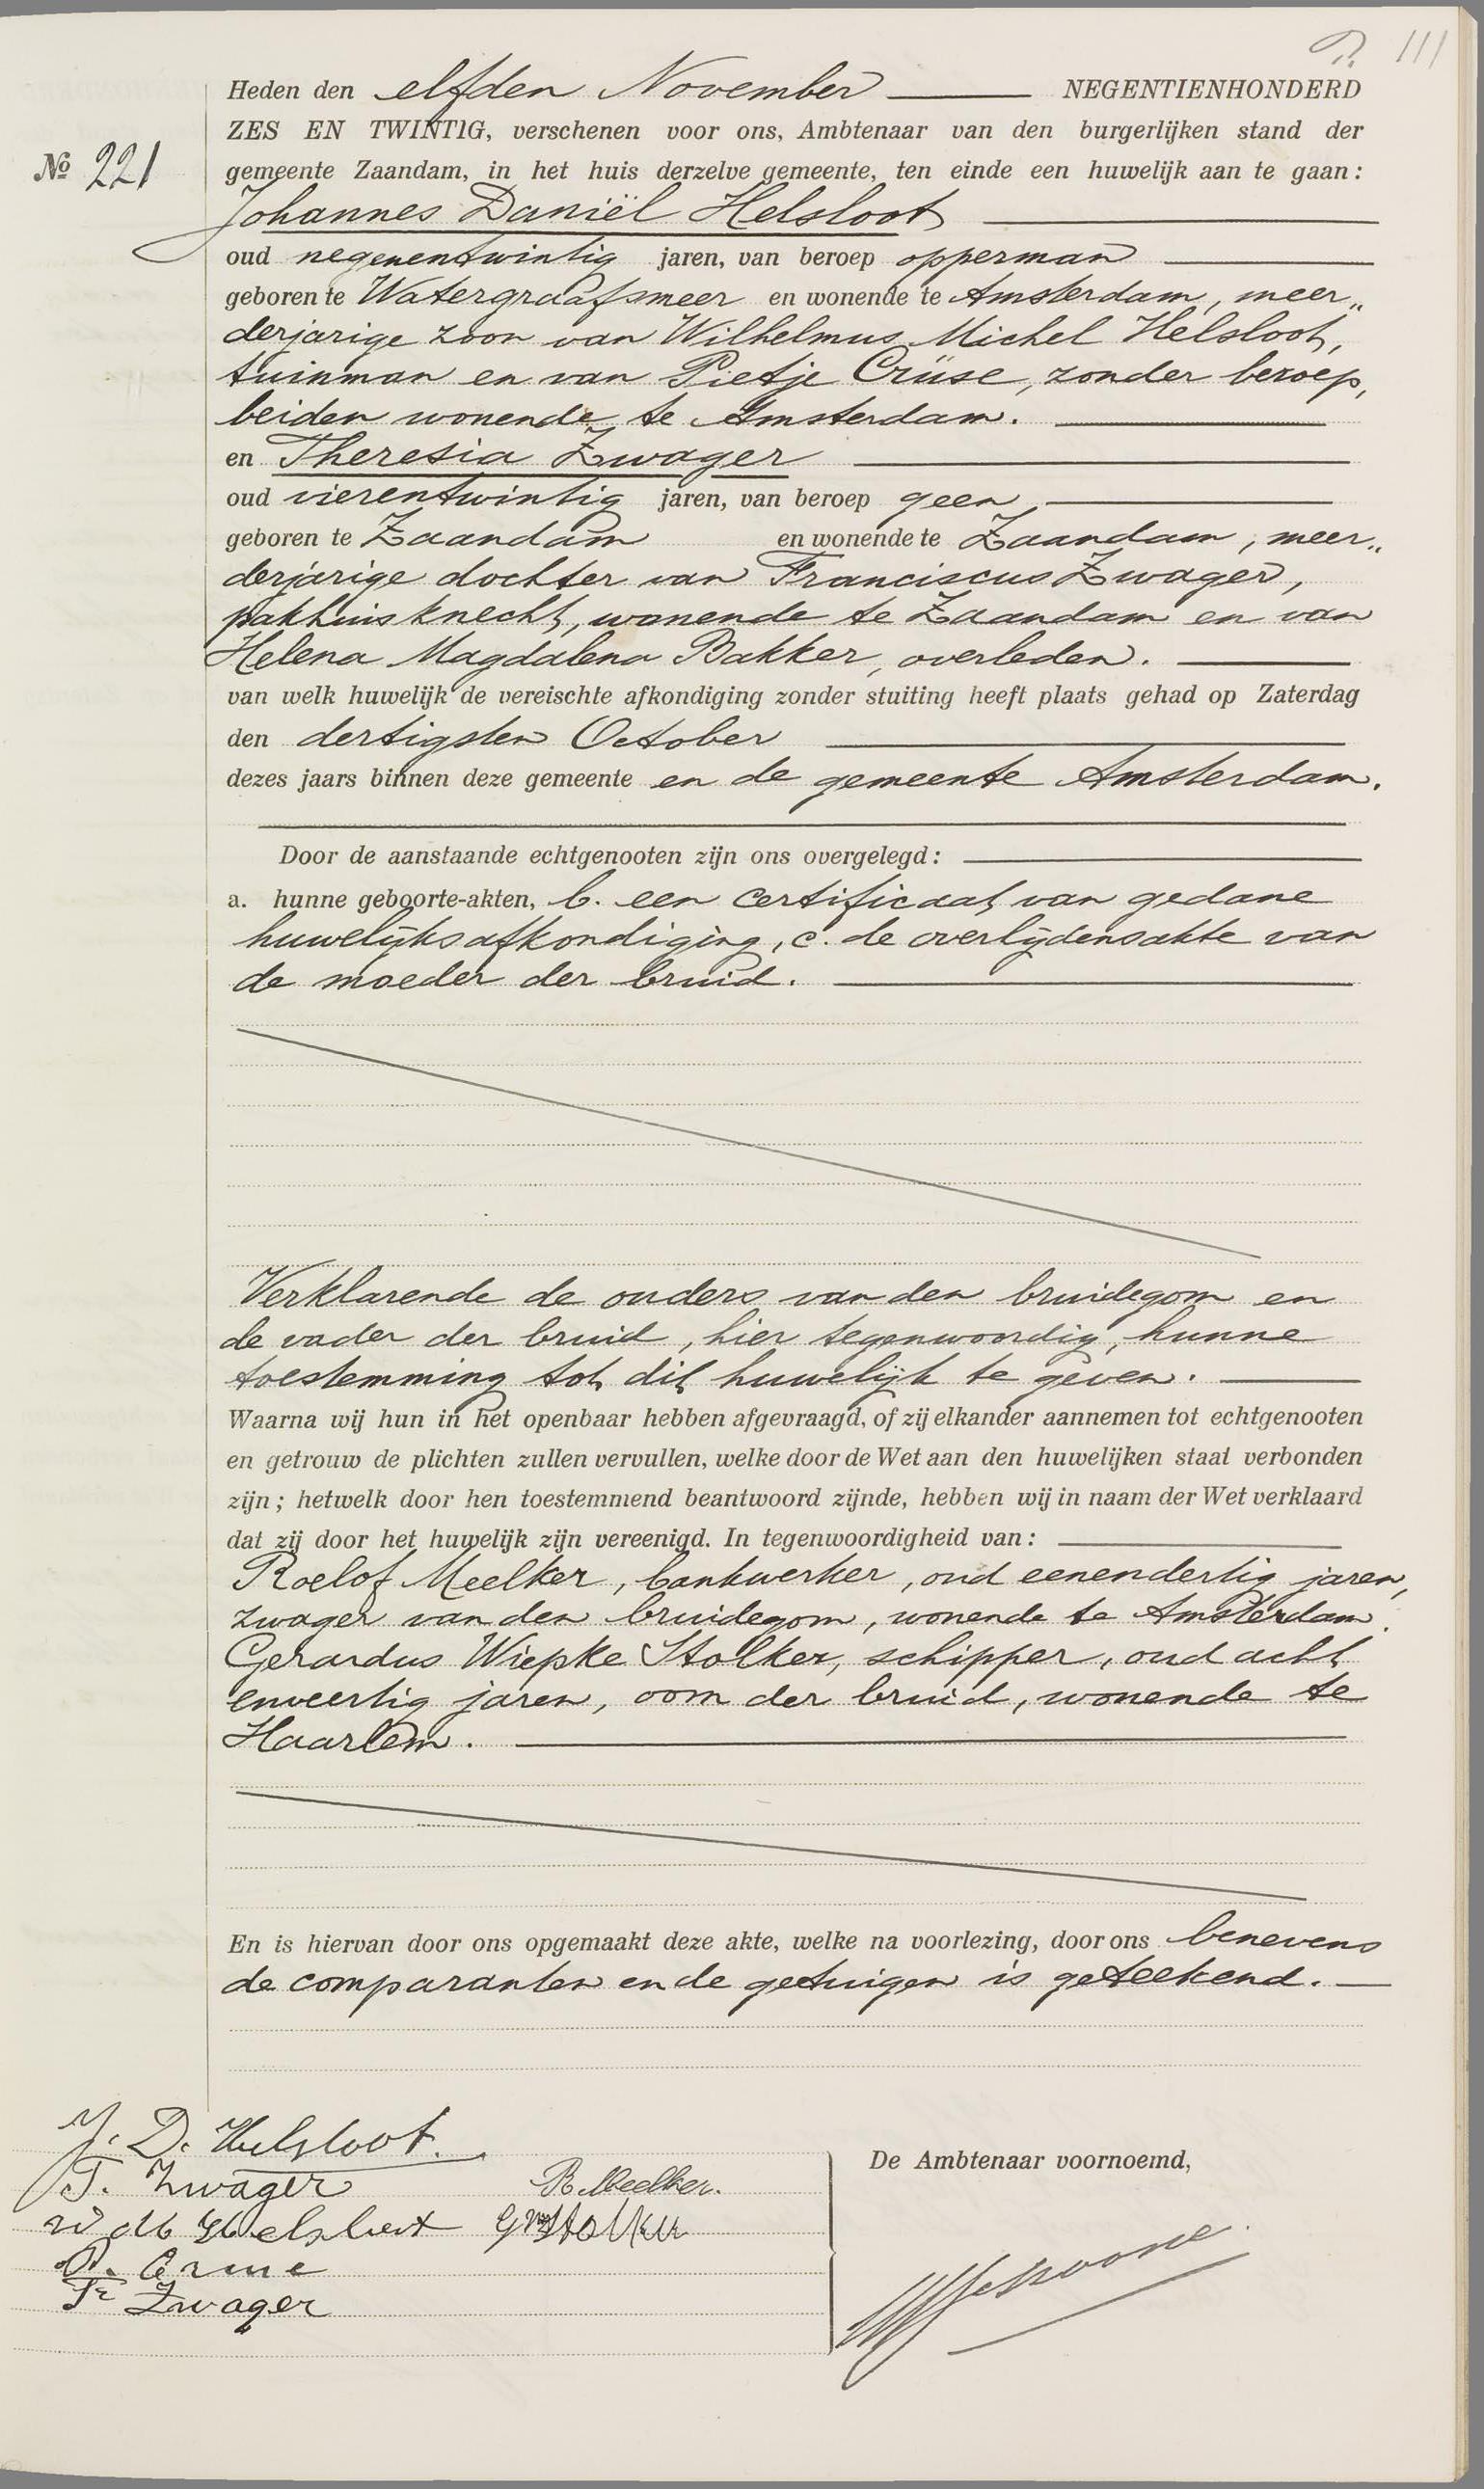 111
Heden den elfden November NEGENTIENHONDERD
ZES EN TWINTIG, verschenen voor ons, Ambtenaar van den burgerlijken stand der
No 221
gemeente Zaandam, in het huis derzelve gemeente, ten einde een huwelijk aan te gaan:
Johannes Daniël Helsloot
oud negenentwintig jaren, van beroep opperman
geboren te Watergraafsmeer en wonende te Amsterdam, meer„
derjarige zoon van Wilhelmus Michel Helsloot,
tuinman en van Pietje Crüse, zonder beroep,
beiden wonende te Amsterdam.
en Theresia Zwager
oud vierentwintig jaren, van beroep geen
geboren te Zaandam en wonende te Zaandam, meer„
derjarige dochter van Franciscus Zwager,
pakhuisknecht, wonende te Zaandam en van
Helena Magdalena Bakker, overleden.
van welk huwelijk de vereischte afkondiging zonder stuiting heeft plaats gehad op Zaterdag
den dertigsten October
dezes jaars binnen deze gemeente en de gemeente Amsterdam.
Door de aanstaande echtgenooten zijn ons overgelegd:
a. hunne geboorte-akten, b. een certificaat van gedane
huwelijksafkondiging, c. de overlijdensakte van
de moeder der bruid.
Verklarende de ouders van den bruidegom en
de vader der bruid, hier tegenwoordig, hunne
toestemming tot dit huwelijk te geven.
Waarna wij hun in het openbaar hebben afgevraagd, of zij elkander aannemen tot echtgenooten
en getrouw de plichten zullen vervullen, welke door de Wet aan den huwelijken staat verbonden
zijn; hetwelk door hen toestemmend beantwoord zijnde, hebben wij in naam der Wet verklaard
dat zij door het huwelijk zijn vereenigd. In tegenwoordigheid van:
Roelof Meelker, bankwerker, oud eenendertig jaren,
zwager van den bruidegom, wonende te Amsterdam.
Gerardus Wiepke Stolker, schipper, oud acht
enveertig jaren, oom der bruid, wonende te
Haarlem.
En is hiervan door ons opgemaakt deze akte, welke na voorlezing, door ons benevens
de comparanten en de getuigen is geteekend.
J. D. Helsloot.
De Ambtenaar voornoemd,
T. Zwager R Meelker.
W M Helsloot G W Stolker
P. Cruse
Fr Zwager